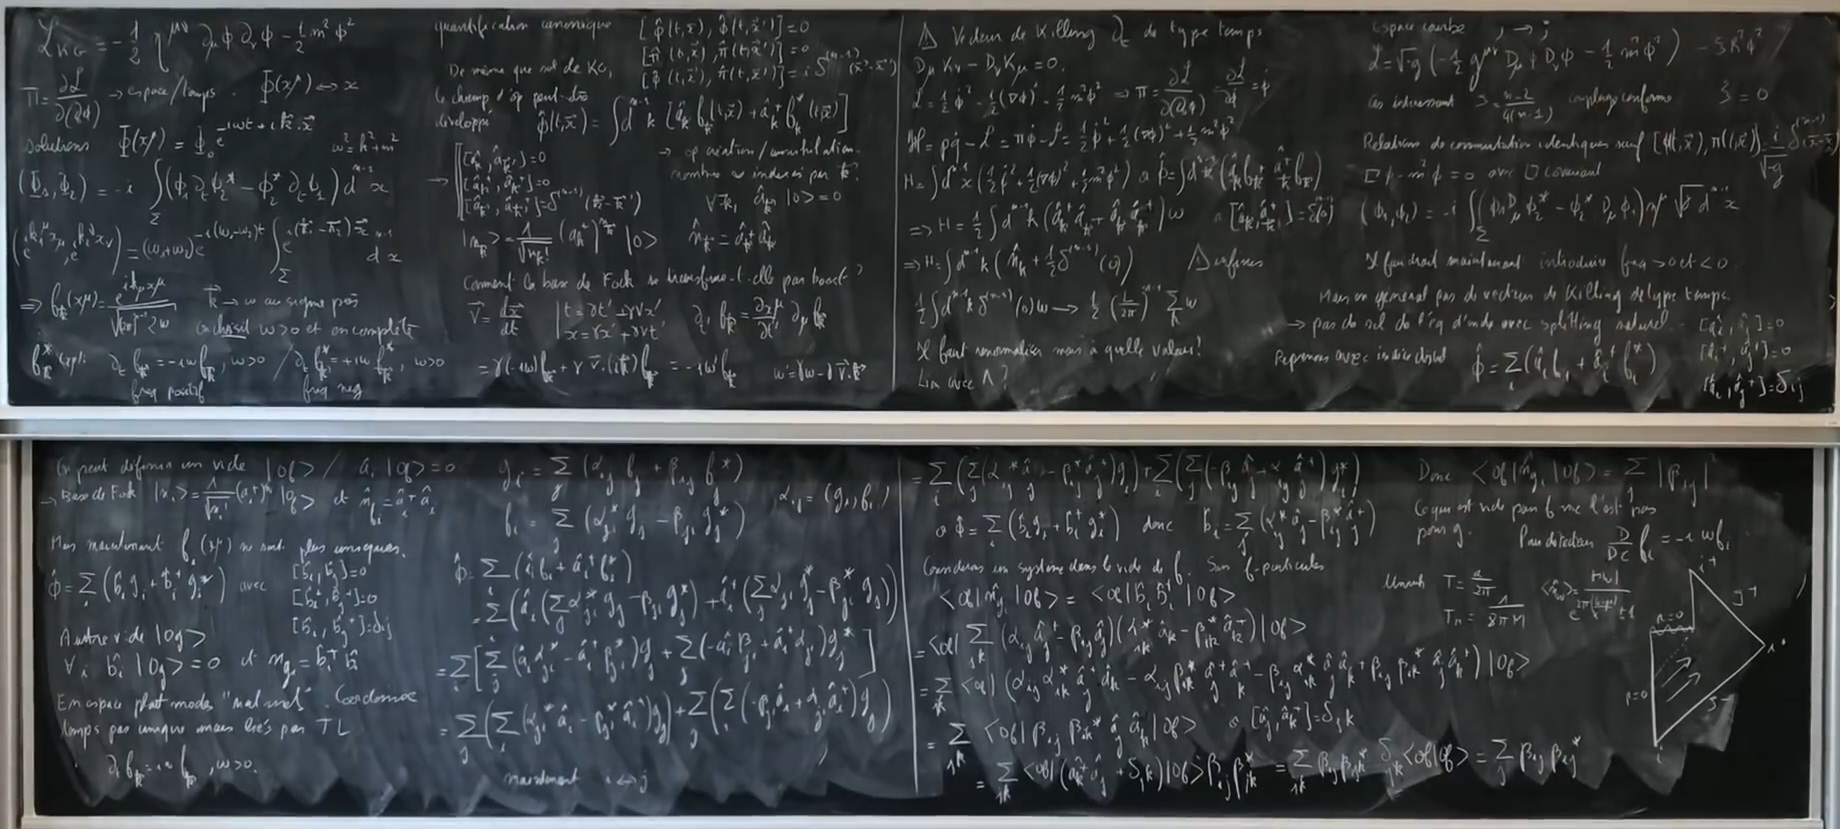 L_KG = -1/2 η^{μν} ∂_μ φ ∂_ν φ - 1/2 m² φ²
Π = ∂L/∂(∂_t φ) → espace/temps. Φ(x^μ) ↔ x
solutions Φ(x^μ) = Φ_0 e^{-iωt + i k·x} ω² = k² + m²
(Φ_1, Φ_2) = -i ∫_Σ (φ_1 ∂_t φ_2^* - φ_2^* ∂_t φ_1) d^{n-1} x
(e^{i k_1^μ x_μ}, e^{i k_2^ν x_ν}) = (ω_1+ω_2) e^{-i(ω_1-ω_2)t} ∫_Σ e^{i(k_1-k_2)x} d^{n-1} x
⇒ f_k(x^μ) = e^{i k_μ x^μ} / √((2π)^{n-1} 2ω) k → ω au signe près
on choisit ω>0 et on complète
∂_t f_k = -iω f_k, ω>0 / ∂_t f_k^* = +iω f_k^*, ω>0
freq positif freq neg
quantification canonique [φ(t,x), φ(t,x')] = 0
[π(t,x), π(t,x')] = 0
[φ(t,x), π(t,x')] = i δ^{(n-1)}(x-x')
De même que sol de KG,
le champ d'op peut être
développé φ(t,x) = ∫ d^{n-1}k [a_k f_k(t,x) + a_k^+ f_k^*(t,x)]
→ op création/annihilation.
→ [a_k, a_k'] = 0
[a_k^+, a_k'^+] = 0
[a_k, a_k'^+] = δ^{(n-1)}(k-k') ∀k, a_k |0> = 0
|n_k> = 1/√(n_k!) (a_k^+)^{n_k} |0> n_k = a_k^+ a_k
Comment la base de Fock se transforme-t-elle par boost?
v = dx/dt | t = γt' + γvx' | x = γx' + γvt' ∂_t' f_k = ∂x^μ/∂t' ∂_μ f_k
= γ(-iω) f_k + γ v·(ik) f_k = -iω' f_k ω' = γω - γ v·k
⚠ Vecteur de Killing ∂_t de type temps
D_μ K_ν - D_ν K_μ = 0.
L = 1/2 φ̇² - 1/2 (∇φ)² - 1/2 m²φ² ⇒ π = ∂L/∂(∂_t φ) = ∂L/∂φ̇ = φ̇
H = pq̇ - L = πφ̇ - L = 1/2 φ̇² + 1/2 (∇φ)² + 1/2 m²φ²
⇒ H = 1/2 ∫ d^{n-1}k (a_k^+ a_k + a_k a_k^+) ω
⇒ H = ∫ d^{n-1}k (n_k + 1/2 δ^{(n-1)}(0)) ⚠ infinis
1/2 ∫ d^{n-1}k δ^{(n-1)}(0) ω → 1/2 (L/2π)^{n-1} Σ_k ω
Il faut renormaliser mais à quelle valeur?
Lien avec Λ?
Espace courbe , → ;
L = √-g (-1/2 g^{μν} D_μ φ D_ν φ - 1/2 m² φ²) - ξRφ²
cas intéressant ξ = (n-2)/4(n-1) couplage conforme ξ = 0
Relations de commutation identiques sauf [φ(t,x), π(t,x')] = i/√-g δ^{(n-1)}(x-x')
□φ - m²φ = 0 avec □ covariant
(φ_1, φ_2) = -i ∫_Σ (φ_1 D_μ φ_2^* - φ_2^* D_μ φ_1) n^μ √γ d^{n-1} x
Il faudrait maintenant introduire freq >0 et <0
Mais en général pas de vecteur de Killing de type temps.
→ pas de sol de l'éq d'onde avec splitting naturel
Reprenons avec indice discret φ = Σ_i (a_i f_i + a_i^+ f_i^*)
[a_i, a_j] = 0
[a_i^+, a_j^+] = 0
[a_i, a_j^+] = δ_ij
On peut définir un vide |0f> / a_i |0f> = 0
→ Base de Fock |n_i> = 1/√(n_i!) (a_i^+)^{n_i} |0f> et n_{f_i} = a_i^+ a_i
Mais maintenant f_i(x^μ) ne sont plus uniques.
φ = Σ_i (b_i g_i + b_i^+ g_i^*) avec [b_i, b_j] = 0
[b_i^+, b_j^+] = 0
[b_i, b_j^+] = δ_ij
Autre vide |0g>
∀i b_i |0g> = 0 et n_{g_i} = b_i^+ b_i
En espace plat modes "naturel". Coordonnée
temps pas unique mais liés par TL
∂_t f_k = -iω f_k, ω>0.
g_i = Σ_j (α_ij f_j + β_ij f_j^*)
f_i = Σ_j (α_ji^* g_j - β_ji g_j^*) α_ij = (g_i, f_j)
φ = Σ_i (a_i f_i + a_i^+ f_i^*)
= Σ_i (a_i (Σ_j α_ji^* g_j - β_ji g_j^*) + a_i^+ (Σ_j α_ji g_j^* - β_ji^* g_j))
= Σ_i [Σ_j (a_i α_ji^* - a_i^+ β_ji^*) g_j + Σ_j (-a_i β_ji + a_i^+ α_ji) g_j^*]
= Σ_j (Σ_i (α_ji^* a_i - β_ji^* a_i^+) g_j) + Σ_j (Σ_i (-β_ji a_i + α_ji a_i^+) g_j^*)
maintenant i ↔ j
= Σ_i (Σ_j (α_ij^* a_j - β_ij^* a_j^+) g_i) + Σ_i (Σ_j (-β_ij a_j + α_ij a_j^+) g_i^*)
or φ = Σ_i (b_i g_i + b_i^+ g_i^*) donc b_i = Σ_j (α_ij^* a_j - β_ij^* a_j^+)
Considérons un système dans le vide de f. Sans f-particules
<0f| n_{g_i} |0f> = <0f| b_i^+ b_i |0f>
= <0f| Σ_jk (α_ij a_j^+ - β_ij a_j)(α_ik^* a_k - β_ik^* a_k^+) |0f>
= Σ_jk <0f| (α_ij α_ik^* a_j^+ a_k - α_ij β_ik^* a_j^+ a_k^+ - β_ij α_ik^* a_j a_k + β_ij β_ik^* a_j a_k^+) |0f>
= Σ_jk <0f| β_ij β_ik^* a_j a_k^+ |0f> or [a_j, a_k^+] = δ_jk
= Σ_jk <0f| (a_k^+ a_j + δ_jk) |0f> β_ij β_ik^* = Σ_jk β_ij β_ik^* δ_jk <0f|0f> = Σ_j β_ij β_ij^*
Donc <0f| n_{g_i} |0f> = Σ_j |β_ij|²
Ce qui est vide pour f ne l'est pas
pour g. Pour détecteur D/Dτ f_i = -iω f_i
Unruh T = a/2π
T_H = 1/8πM
r=0
r=0
i⁺
J⁺
i⁰
J⁻
i